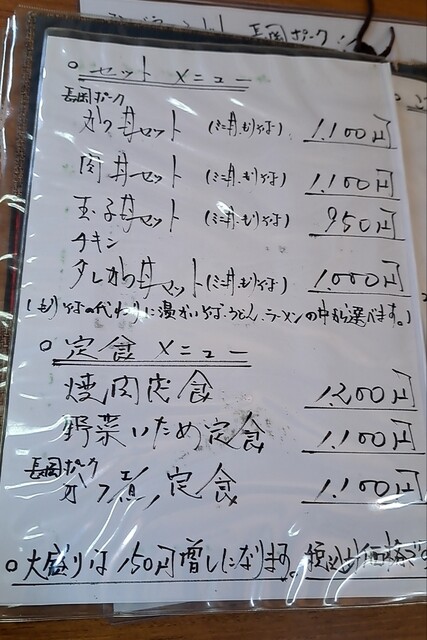 長岡ポーク
○ セット メニュー
長岡ポーク
カツ丼セット (ミニ丼、もりそば) 1,100円
肉丼セット (ミニ丼、もりそば) 1,100円
玉子丼セット (ミニ丼、もりそば) 950円
チキン
タレかつ丼セット (ミニ丼、もりそば) 1,000円
(もりそばの代わりに温かいそば、うどん、ラーメンの中から選べます。)
○ 定食 メニュー
焼肉定食 1,200円
野菜いため定食 1,100円
長岡ポーク
カツ煮定食 1,100円
○大盛りは150円増しになります。税込み価格で